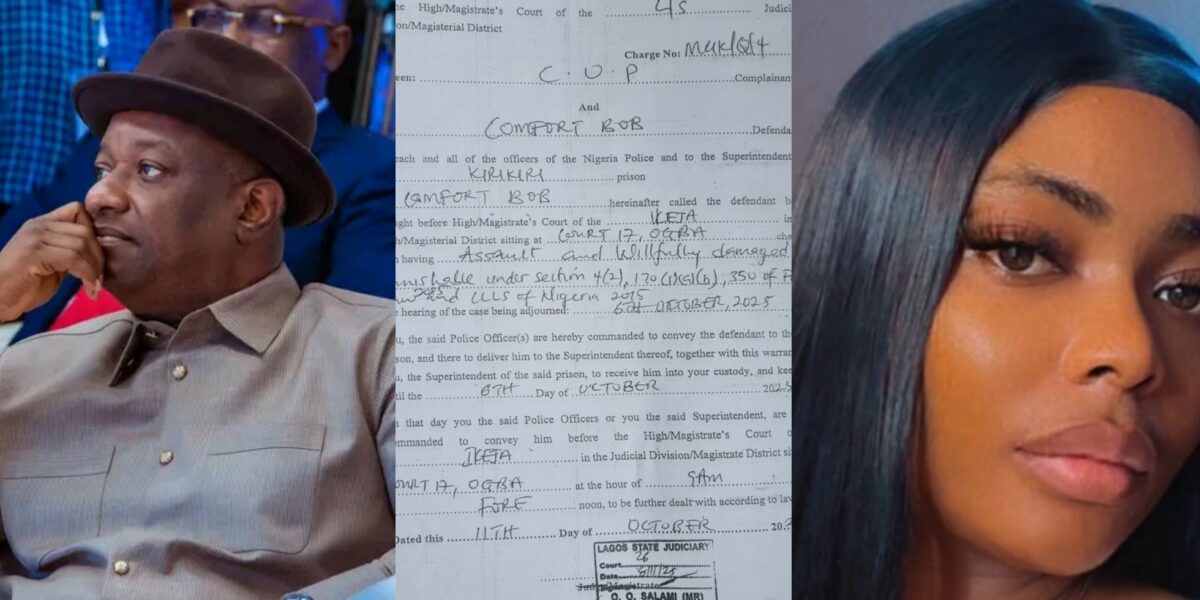 he High/Magistrate's Court of the 4s Judici
on/Magisterial District
Charge No: MUK/Q/4
een: C.O.P Complainan
And
COMFORT BOB Defenda
each and all of the officers of the Nigeria Police and to the Superintendent
KIRIKIRI prison
COMFORT BOB hereinafter called the defendant b
ght before High/Magistrate's Court of the IKEJA in
h/Magisterial District sitting at COURT 17, OGBA cha
having Assault and Willfully damaged
nishable under section 4(2), 170 350 of
LLS of Nigeria 2015
e hearing of the case being adjourned: 6TH OCTOBER, 2025
u, the said Police Officer(s) are hereby commanded to convey the defendant to the
son, and there to deliver him to the Superintendent thereof, together with this warran
u, the Superintendent of the said prison, to receive him into your custody, and kee
til the 6TH Day of OCTOBER 2025
n that day you the said Police Officers or you the said Superintendent, are
mmanded to convey him before the High/Magistrate's Court o
IKEJA in the Judicial Division/Magistrate District si
OURT 17, OGBA at the hour of 9AM
FORE noon, to be further dealt with according to law
Dated this 11TH Day of OCTOBER 202
LAGOS STATE JUDICIARY
Court 26
Date
O. O. SALAMI (MR)